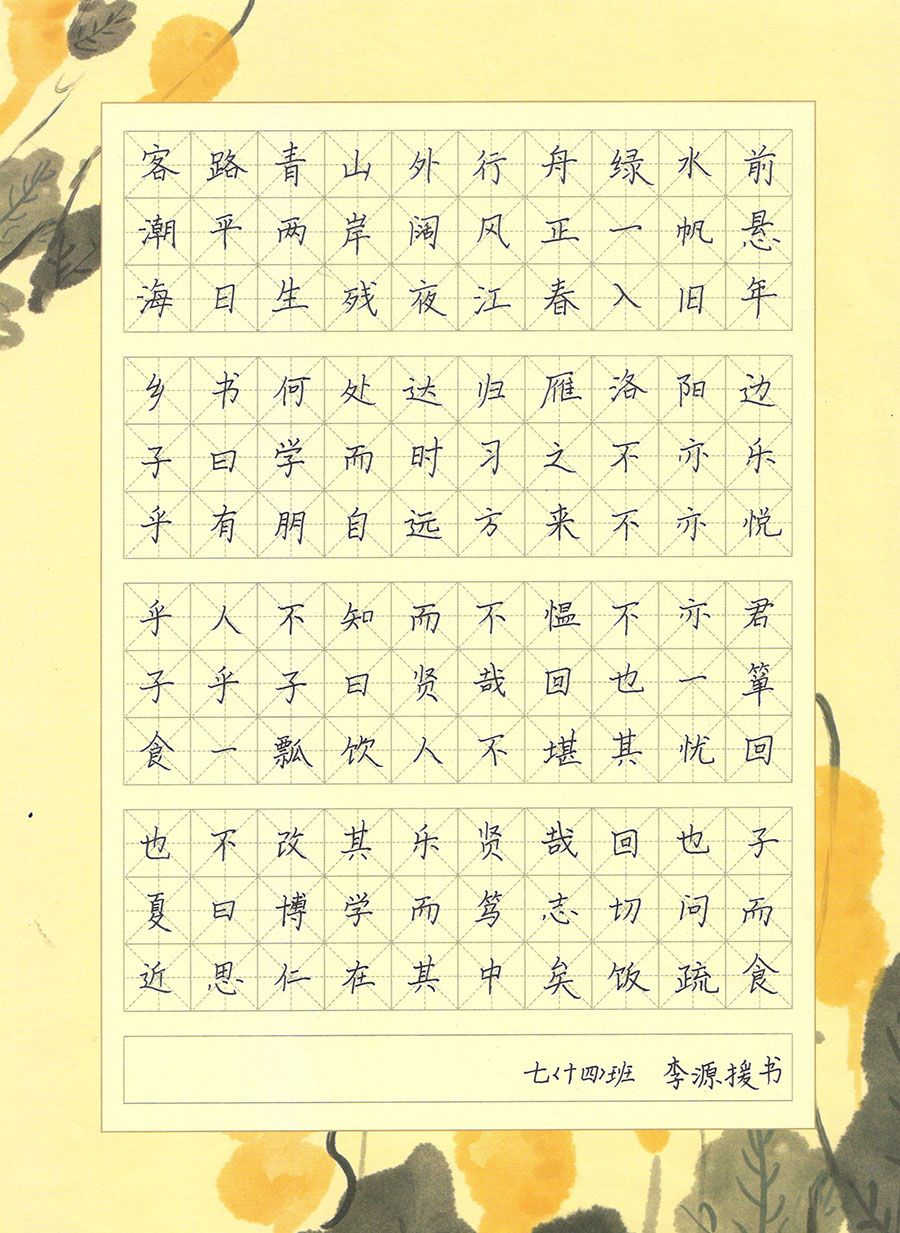 客路青山外行舟绿水前
潮平两岸阔风正一帆悬
海日生残夜江春入旧年
乡书何处达归雁洛阳边
子曰学而时习之不亦乐
乎有朋自远方来不亦悦
乎人不知而不愠不亦君
子乎子曰贤哉回也一箪
食一瓢饮人不堪其忧回
也不改其乐贤哉回也子
夏曰博学而笃志切问而
近思仁在其中矣饭疏食
七〈十四〉班 李源援书